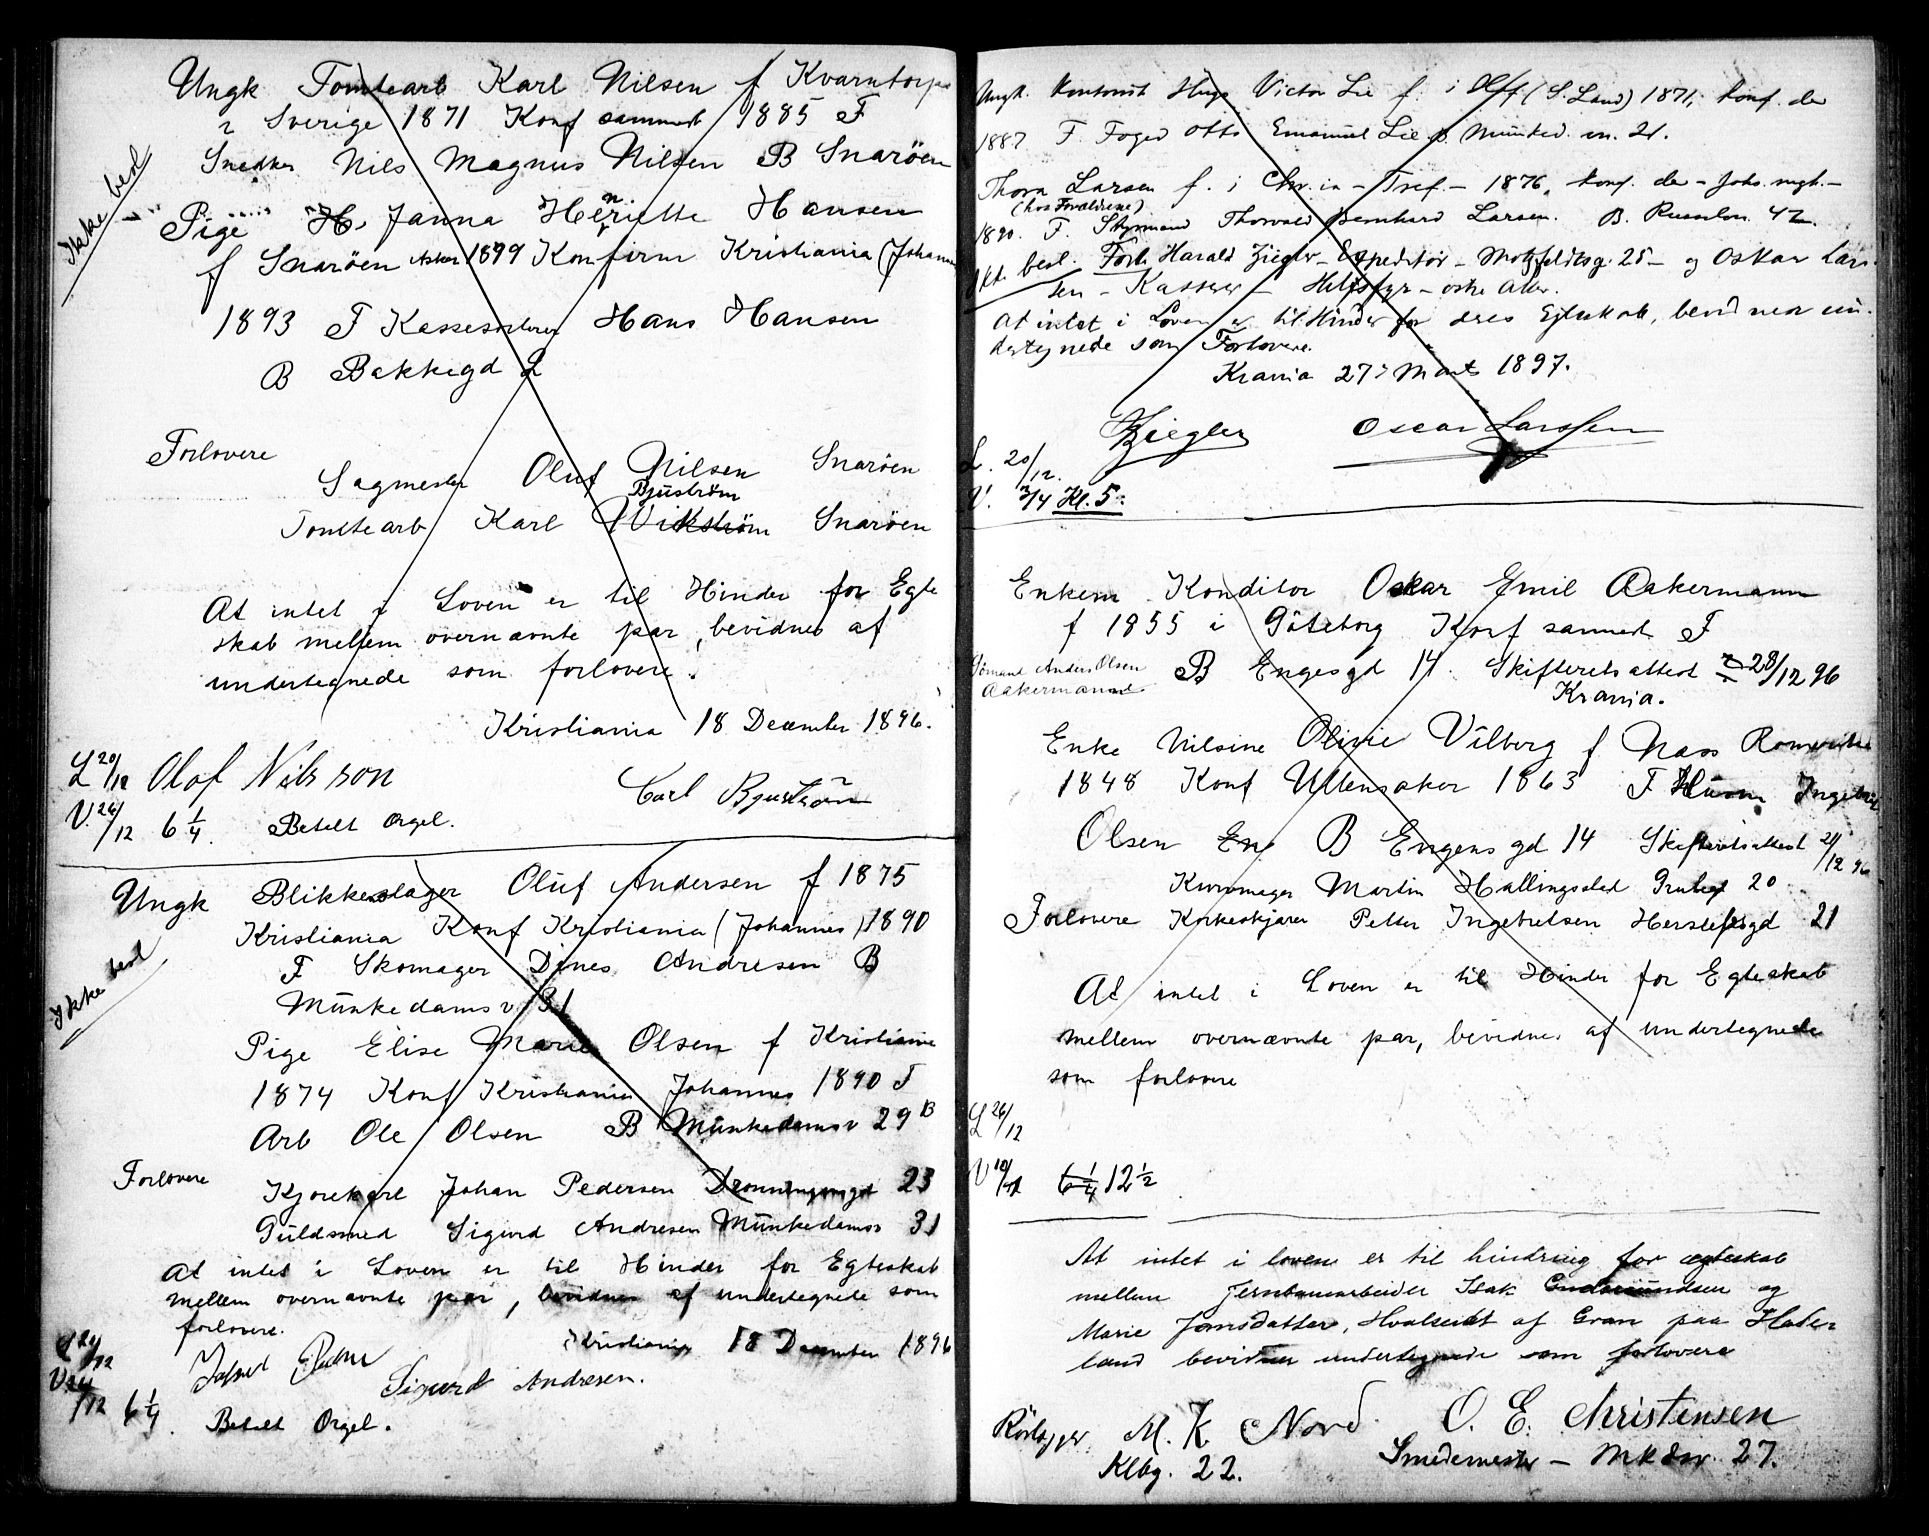 Ungk Tomtearb Karl Nilsen f Kvarntorps
i Sverige 1871 Konf sammest 1885 F
Snedker Nils Magnus Nilsen B Snaröen
Ikke bet
Pige H. Janna Henriette Hansen
f Snaröen Asker 1899 Konfirm Kristiania (Johannes
1893 F Hans Hansen
B Bakkegd 2
Forlovere
Sagmester Oluf Nilsen Snaröen
Bjuström
Tomtearb Karl Wikström Snaröen
At intet i Loven er til Hinder for Egte
skab mellem overnævnte par, bevidnes af
undertegnede som forlovere.
Kristiania 18 December 1896.
L 20/12 Olof Nilsson
Carl Bjuström
V. 26/12 6 1/4. Betalt Orgel.
Ungk Blikkenslager Oluf Andersen f 1875
Kristiania Konf Kristiania (Johannes) 1890
F Skomager Dines Andresen B
Munkedamsv 31
Ikke bet
Pige Elise Marie Olsen f Kristiania
1874 Konf Kristiania Johannes 1890 F
Arb Ole Olsen B Munkedamsv 29 B
Forlovere
Kjorekarl Johan Pedersen Dronningensgt 23
Guldsmed Sigurd Andresen Munkedamsv 31
At intet i Loven er til Hinder for Egteskab
mellem overnævnte par, bevidnes af undertegnede som
forlovere.
Kristiania 18 December 1896
Sigurd Andresen.
6 1/4. Betalt Orgel.
Ungk. Kontorist Hugo Victor Lie f. i (S. Land) 1871, konf. der
1887 F. Foged Otto Emanuel Lie B. Munked. v. 21.
Thora Larsen f. i Chr.ia – Tref. – 1876, konf. der – Johs. mgh. –
(hos Forældrene)
1890. F. Styrmand Thorvald Bernhard Larsen. B. Russelon. 42.
besl. Forl. Harald Ziegler – Expeditör – Motzfeldtsg. 25 – og Oskar Lar-
sen – Kasserer – Helsfyr – östre Aker.
At intet i Loven er til Hinder for deres Egteskab, bevidner un-
dertegnede som Forlovere.
Krania 27 Marts 1897.
Ziegler Oscar Larssen
L. 20/12.
V. 3/4 Kl. 5.
Enkem Konditor Oskar Emil Aakermann
f 1855 i Göteborg Konf sammest F
Anders Olsen
Aakermann
B Engesgd 14. Skifteretsattest 28/12 96
Krania.
Enke Nilsine Olivie Vilberg f Næss Romerike
1848 Konf Ullensaker 1863 F Husm Ingebrigt
Olsen En B Engens gd 14 Skifteretsattest 21/12 96
Kurvmager Martin Hallingstad 20
Forlovere Korkeskjærer Petter Ingebretsen Herslebsgd 21
At intet i Loven er til Hinder for Egteskab
mellem overnævnte par, bevidnes af undertegnede
som forlovere
L 26/12
V 10/1 6 1/4 12 1/2
At intet i loven er til hindring for ægteskab
mellem Jernbanearbeider Isak Gudmundsen og
Marie Jonsdatter, Hvalseidt af Gran paa Hade-
land bevidner undertegnede som forlovere
Rörlægger M. K Nord O. E. Christensen
Klbg. 22. Smedemester – Mkdsv. 27.